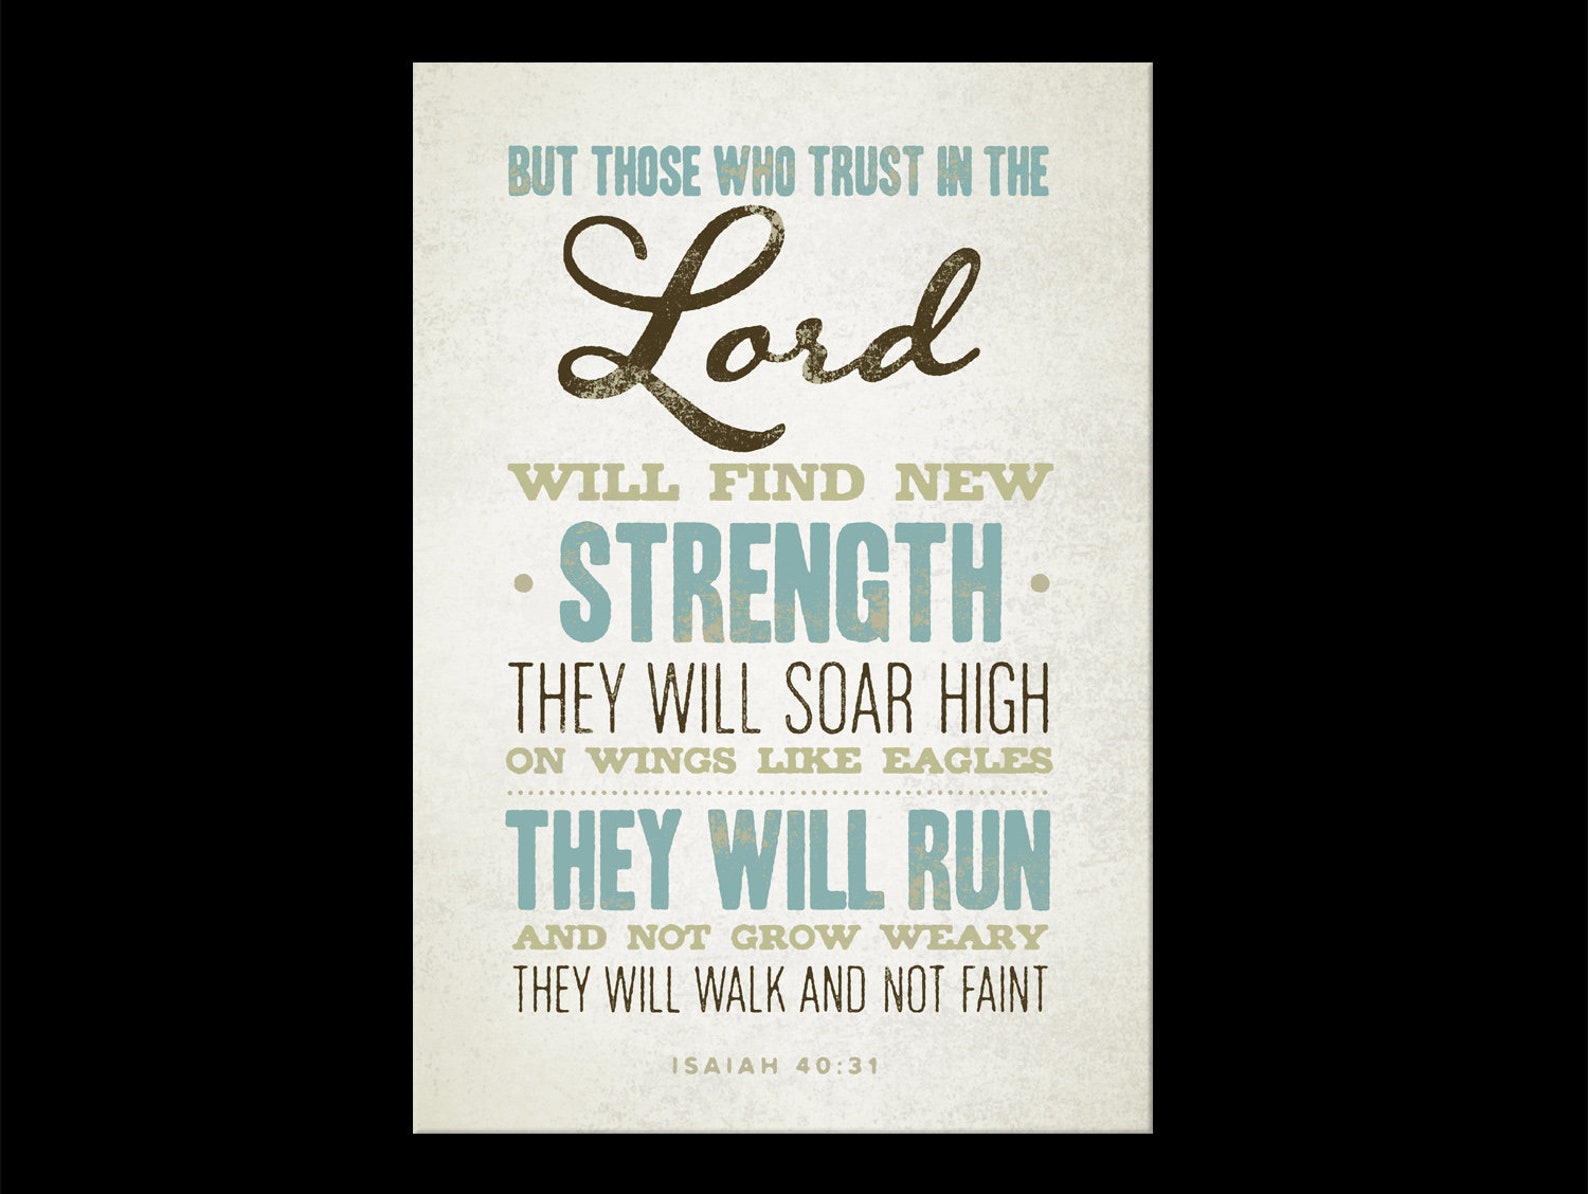 BUT THOSE WHO TRUST IN THE
Lord
WILL FIND NEW
STRENGTH
THEY WILL SOAR HIGH
ON WINGS LIKE EAGLES
THEY WILL RUN
AND NOT GROW WEARY
THEY WILL WALK AND NOT FAINT
ISAIAH 40:31